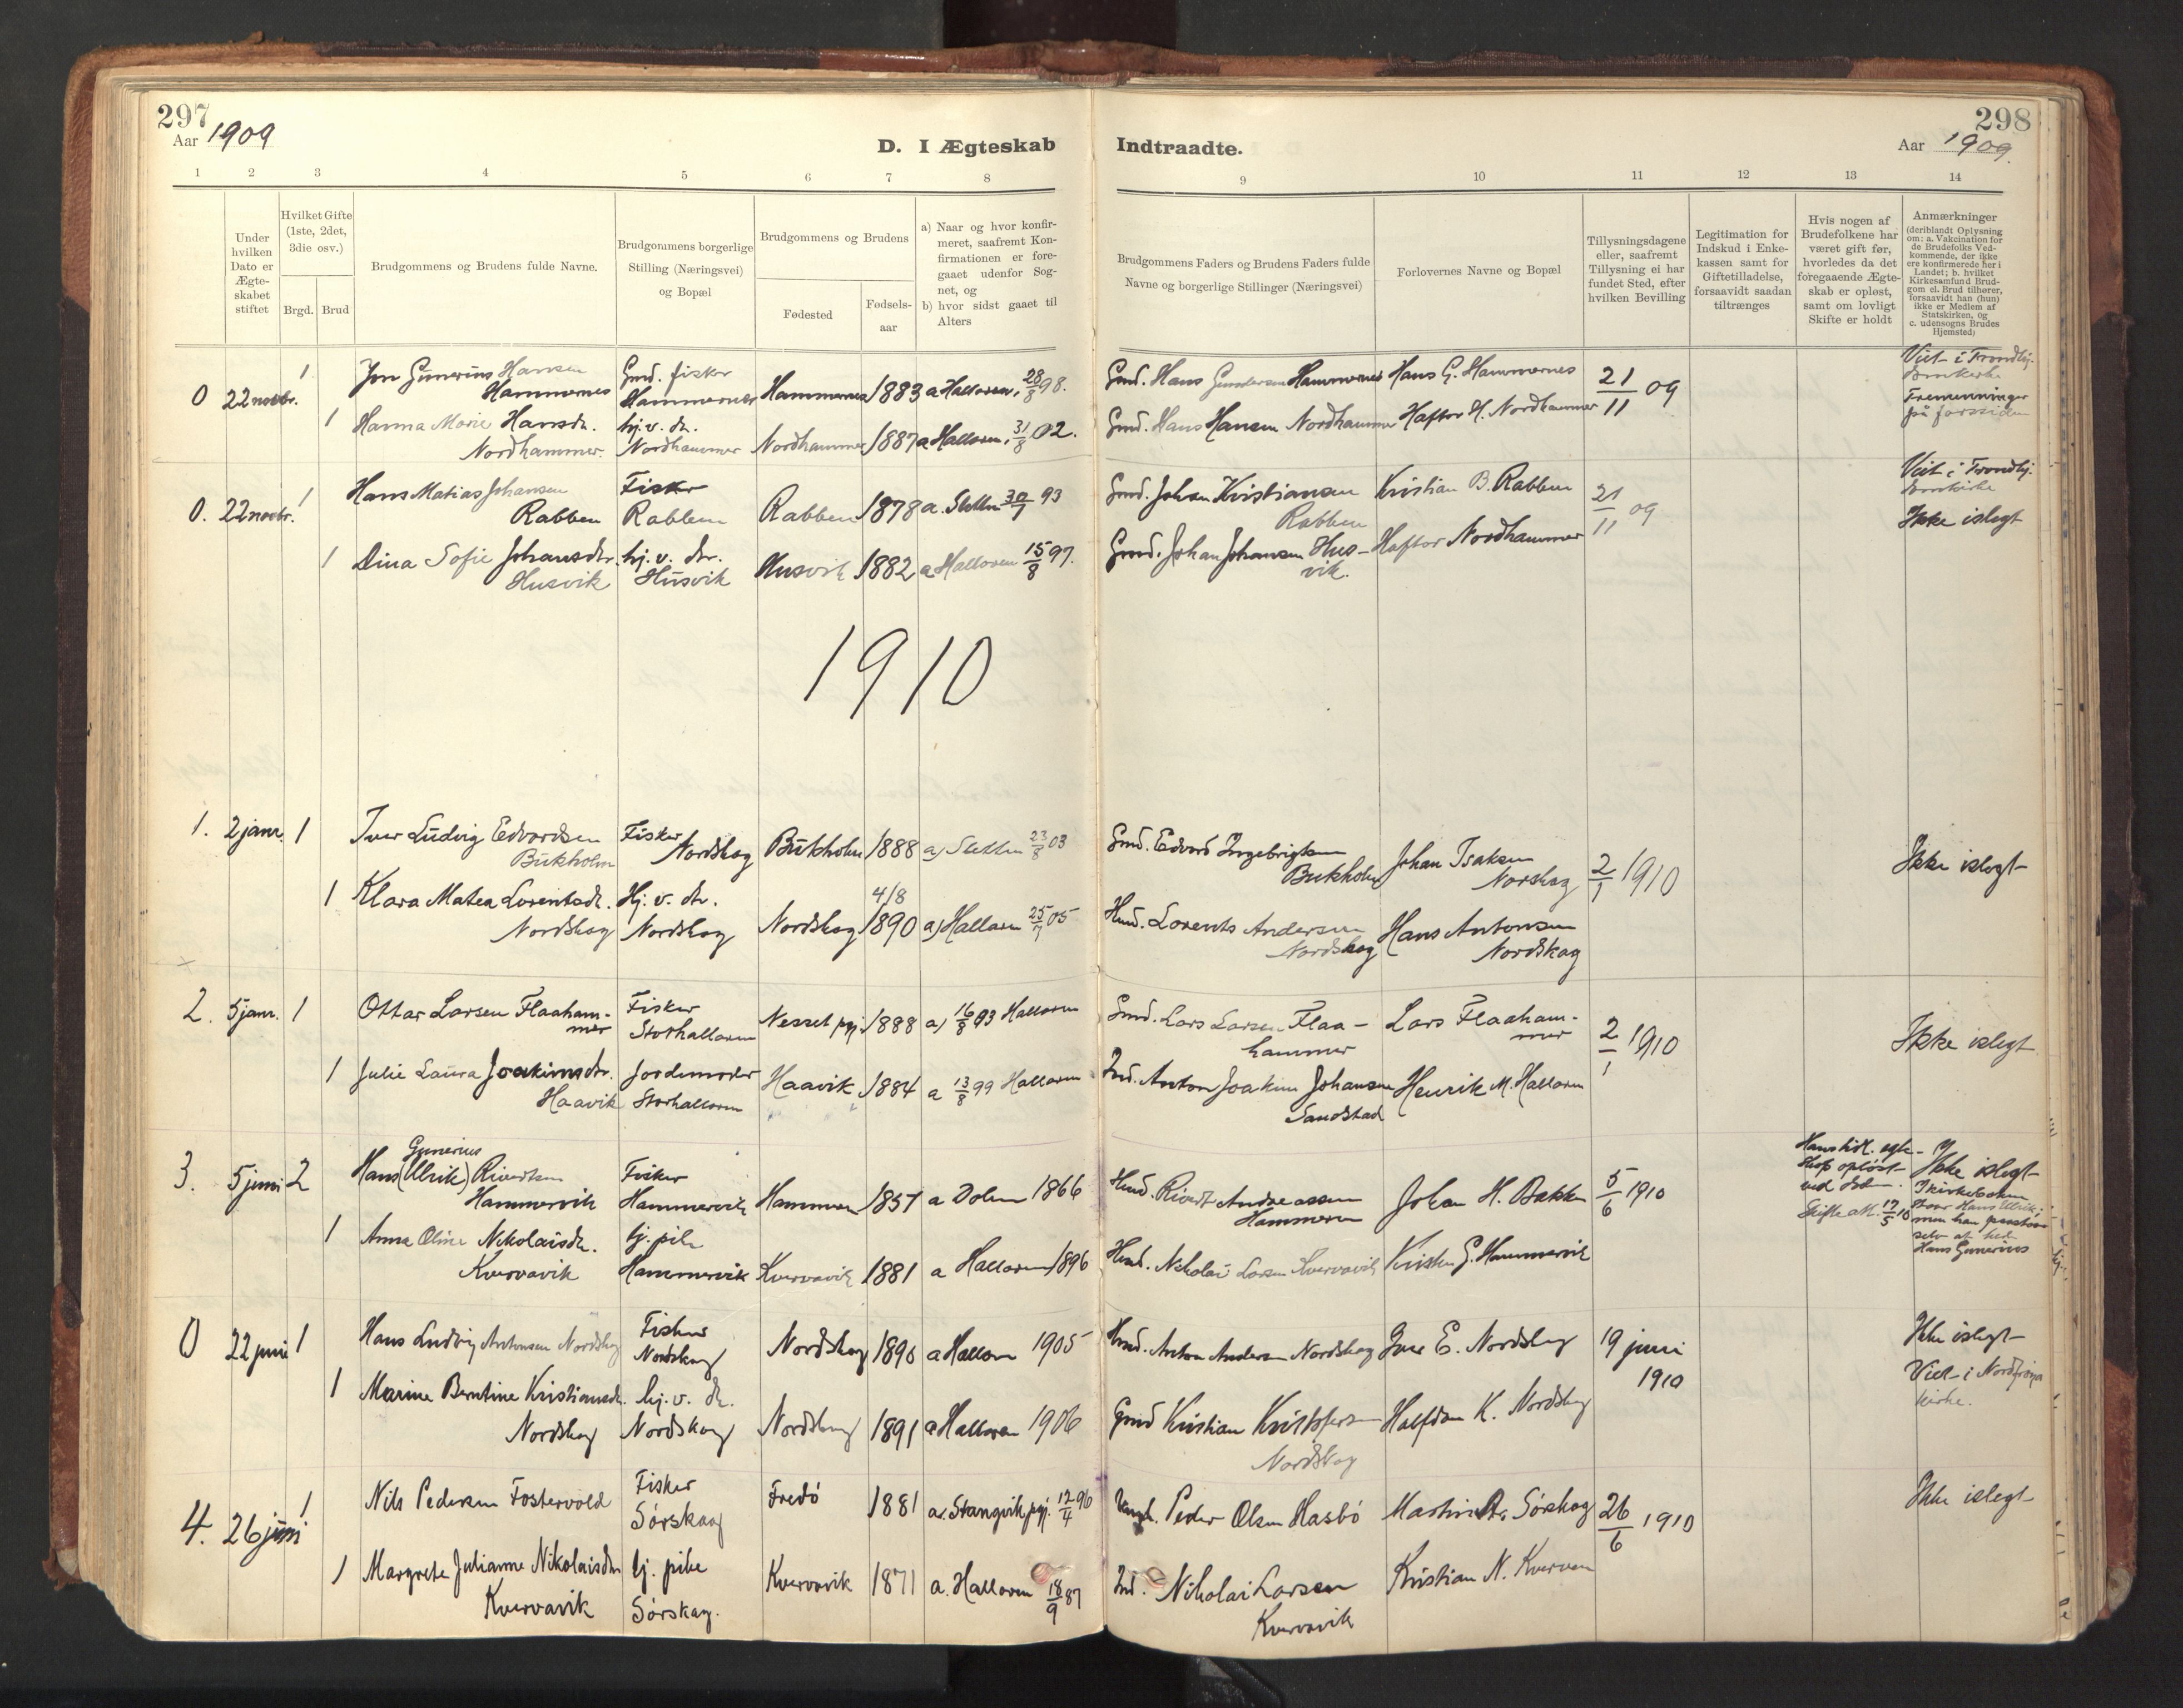 297
Aar 1909
D. I Ægteskab
1 2 3 4 5 6 7 8
Under hvilken Dato er Ægte-skabet stiftet
Hvilket Gifte (1ste, 2det, 3die osv.)
Brgd. Brud
Brudgommens og Brudens fulde Navne.
Brudgommens borgerlige Stilling (Næringsvei) og Bopæl
Brudgommens og Brudens
Fødested
Fødsels-aar
a) Naar og hvor konfir-meret, saafremt Kon-firmationen er fore-gaaet udenfor Sog-net, og
b) hvor sidst gaaet til Alters
0 22 novbr. 1 Jon Gunerius Hansen Hammernes Gmd. fisker Hammernes Hammernes 1883 a Halloren, 28/8 98.
1 Hanna Marie Hansdr. Nordhammer. hj. v. dr. Nordhammer Nordhammer 1887 a Halloren, 31/8 02.
0. 22 novbr. 1 Hans Matias Johansen Rabben Fisker Rabben Rabben 1878 a. Sletten 30/7 93
1 Dina Sofie Johansdr. Husvik hj. v. dr. Husvik Husvik 1882 a Halloren 15/8 97.
1910
1. 2 janr. 1 Iver Ludvig Edvardsen Bukholm Fisker Nordskag Bukholm 1888 a) Sletten 23/8 03
1 Klara Matea Lorentsdr. Nordskag Hj. v. dr. Nordskag Nordskag 4/8 1890 a) Halloren 25/7 05
2. 5 janr. 1 Ottar Larsen Flaaham-mer Fisker Storhalloren Nesset pgj 1888 a) 16/8 03 Halloren
1 Julie Laura Joakimsdr. Haavik Jordemoder Storhalloren Haavik 1884 a 13/8 99 Halloren
3. 5 juni 2 Hans (Ulrik) Gunerius Rivertsen Hammervik Fisker Hammervik Hammeren 1851 a Dolm 1866
1 Anna Oline Nikolaisdr. Kvervavik tj. pike Hammervik Kvervavik 1881 a Halloren 1896
0 22 juni 1 Hans Ludvig Antonsen Nordskag Fisker Nordskag Nordskag 1890 a Halloren 1905
1 Marine Berntine Kristiansdr. Nordskag hj. v. dr. Nordskag Nordskag 1891 a Halloren 1906
4. 26 juni 1 Nils Pedersen Fostervold Fisker Sörskag Fredö 1881 a. Stangvik pgj. 12/4 96
1 Margrete Julianne Nikolaisdr Kvervavik tj. pike Sörskag. Kvervavik 1871 a. Halloren 18/9 87
298
Indtraadte.
Aar 1909.
9 10 11 12 13 14
Brudgommens Faders og Brudens Faders fulde Navne og borgerlige Stillinger (Næringsvei)
Forlovernes Navne og Bopæl
Tillysningsdagene eller, saafremt Tillysning ei har fundet Sted, efter hvilken Bevilling
Legitimation for Indskud i Enke-kassen samt for Giftetilladelse, forsaavidt saadan tiltrænges
Hvis nogen af Brudefolkene har været gift før, hvorledes da det foregaaende Ægte-skab er opløst, samt om lovligt Skifte er holdt
Anmærkninger (deriblandt Oplysning om: a. Vakcination for de Brudefolks Ved-kommende, der ikke ere konfirmerede her i Landet; b. hvilket Kirkesamfund Brud-gom el. Brud tilhører, forsaavidt han (hun) ikke er Medlem af Statskirken, og c. udensogns Brudes Hjemsted)
Gmd. Hans Gundersen Hammernes Hans G. Hammernes 21/11 09 Viet i Trondhj. domkirke Tremenninger på farssiden
Gmd. Hans Hansen Nordhammer Haftor H. Nordhammer
Gmd. Johan Kristiansen Rabben Kristian B. Rabben 21/11 09 Viet i Trondhj. domkirke Ikke i slegt
Gmd. Johan Johansen Hus-vik. Haftor Nordhammer
Gmd. Edvard Ingebrigtsen Bukholm Johan Isaksen Norskag 2/1 1910 Ikke i slegt
Hmd. Lorents Andersen Nordskag Hans Antonsen Nordskag
Gmd. Lars Larsen Flaa-hammer Lars Flaaham-mer 2/1 1910 Ikke i slegt
Ind. Anton Joakim Johansen Sandstad Henrik M. Halloren
Hmd. Rivert Andreassen Hammeren Johan H. Bakken 5/6 1910 Hans tidl. egte-skap oplöst ved död. Skifte att. 17/5 10 Ikke i slegt I kirkeboken staar Hans Ulrik; men han paastaar selv at hed Hans Gunerius
Hmd. Nikolai Larsen Kvervavik Kristen G. Hammervik
Hmd. Anton Andersen Nordskag Iver E. Nordskag 19 juni 1910 Ikke i slegt Viet i Nordfröya kirke.
Gmd Kristian Kristofersen Nordskag Halfdan K. Nordskag
Peder Olsen Hasbö Martin Sörskag 26/6 1910 Ikke i slegt
Ind. Nikolai Larsen Kvervavik Kristian N. Kverven